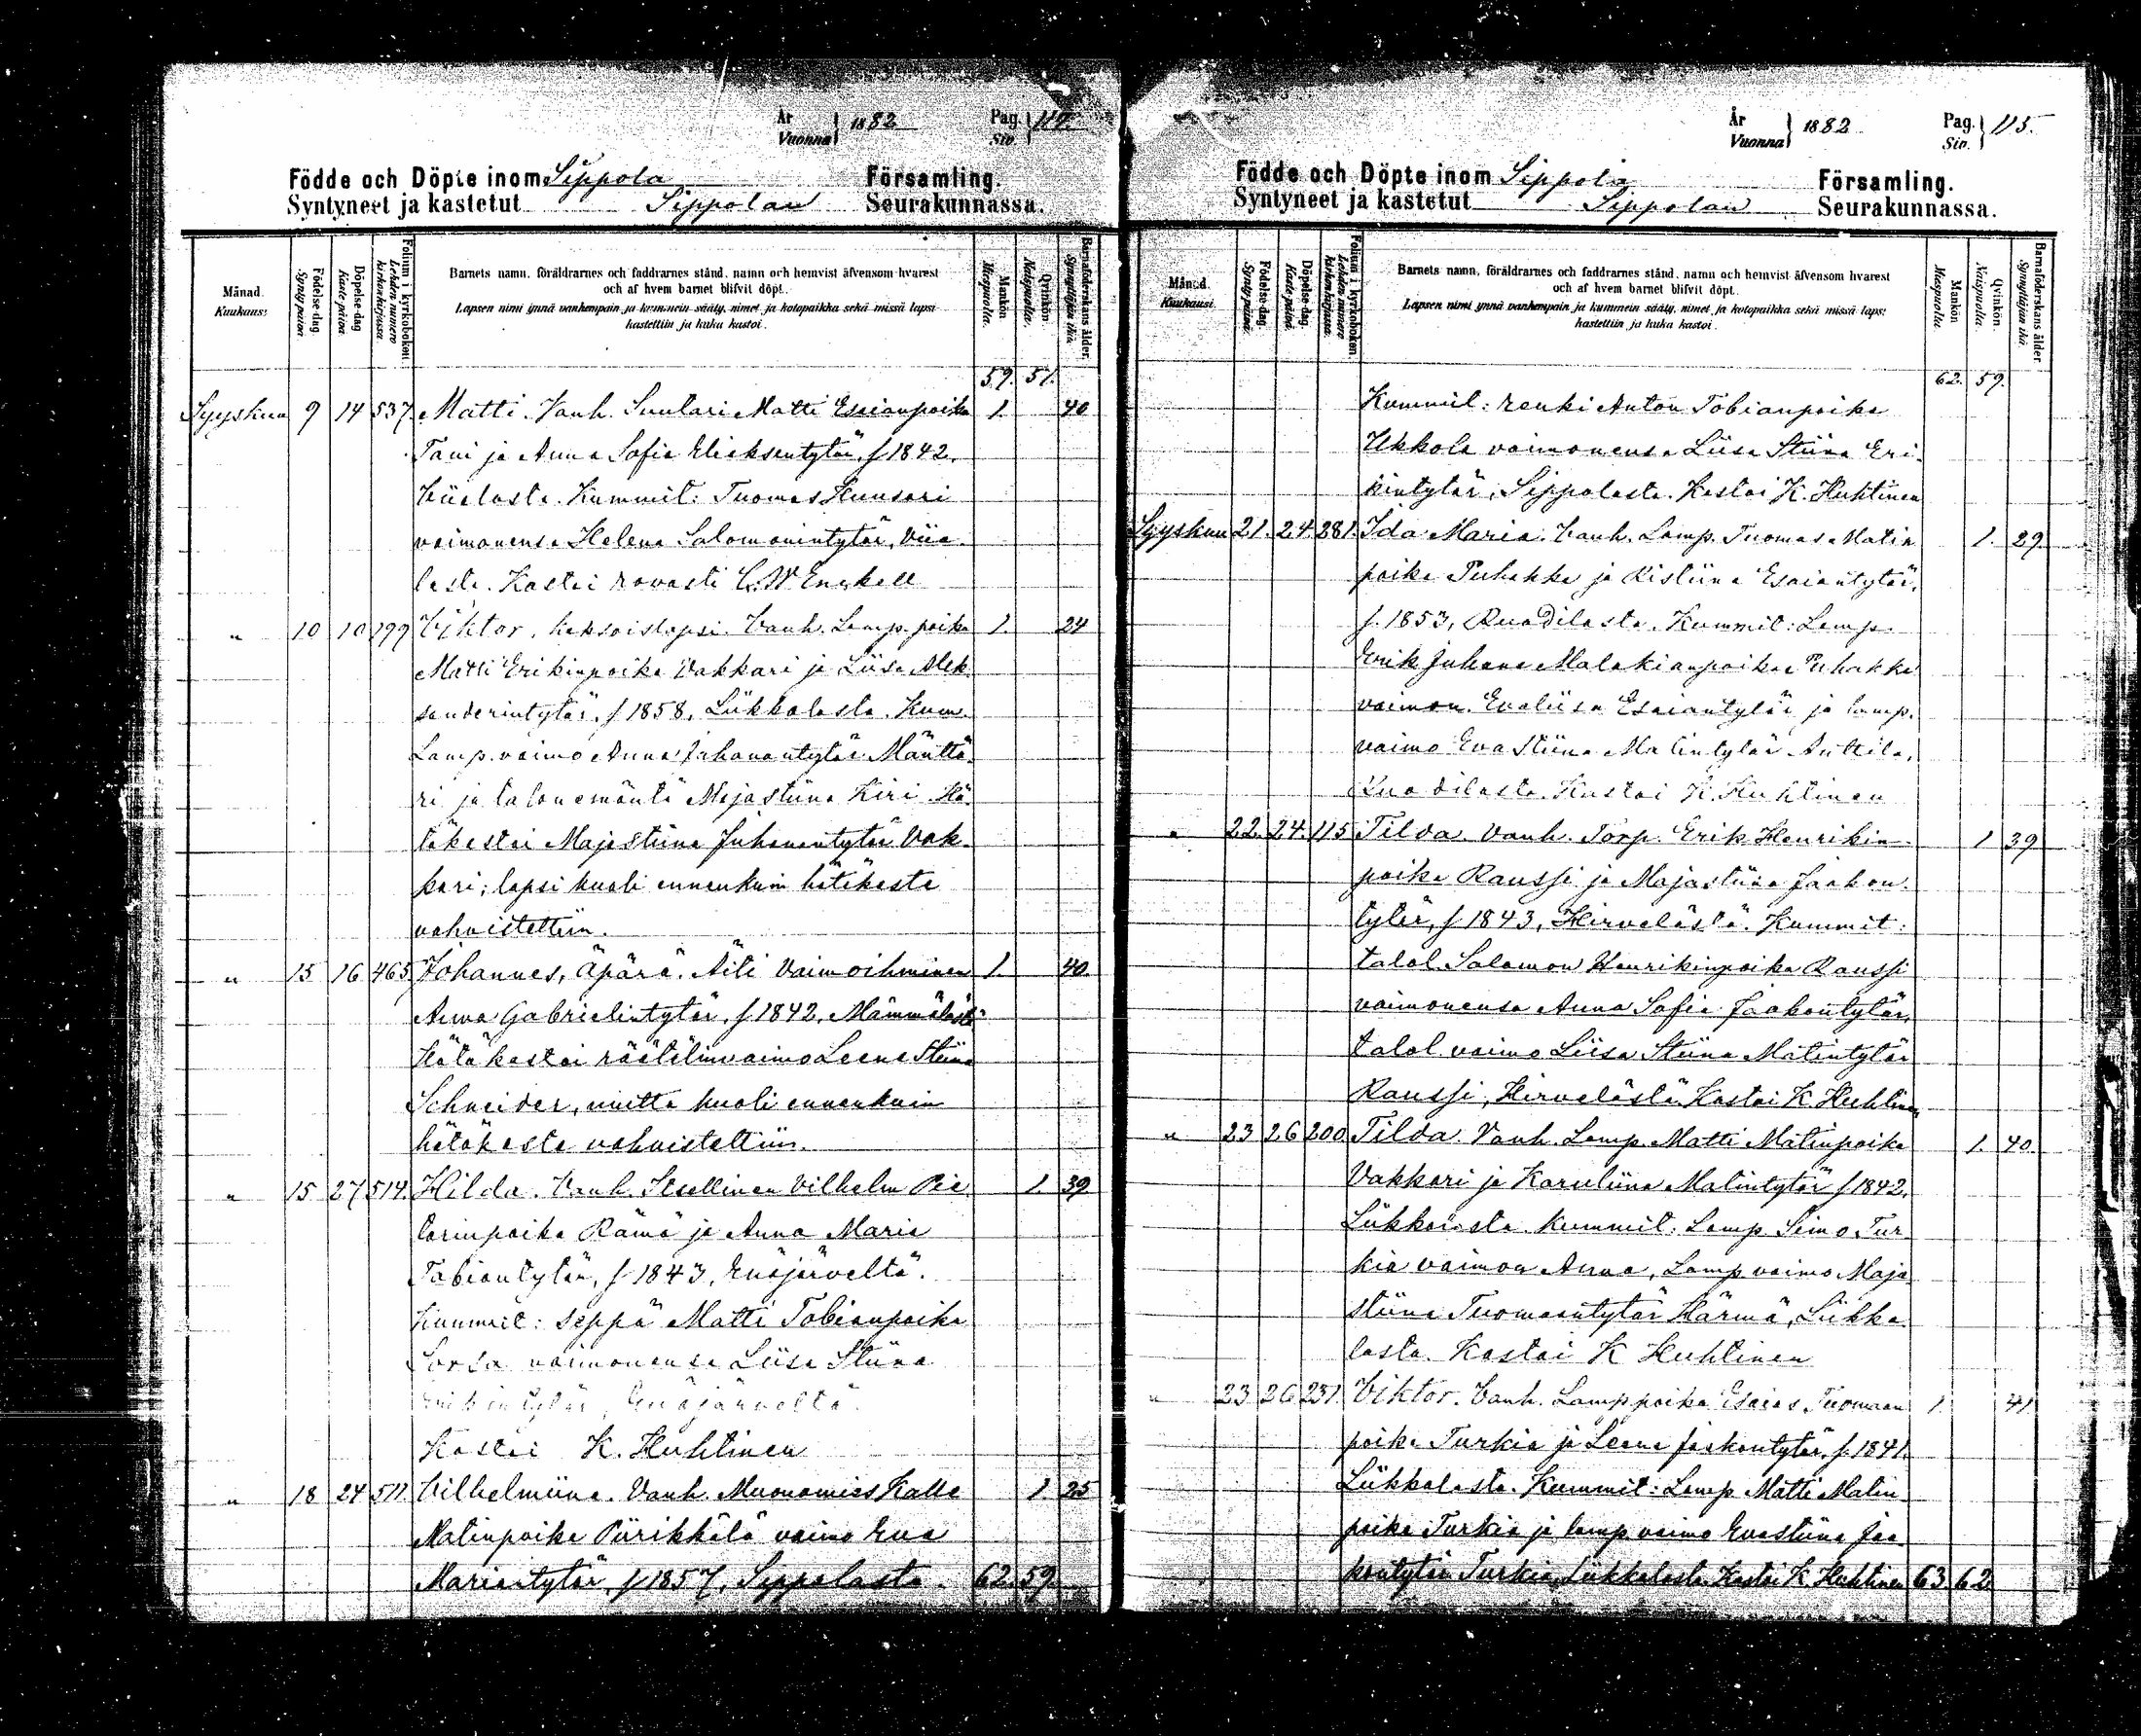 År Vuonna } 1882 Pag. Siv. } 114.
Födde och Döpte inom Sippola Församling.
Syntyneet ja kastetut Sippolan Seurakunnassa.
Månad. Kuukausi. Födelse-dag. Syntypäivä. Döpelse-dag. Kastepäivä. Folium i kyrkoboken. Lehden numero kirkonkirjassa. Barnets namn, föräldrarnes och faddrarnes stånd, namn och hemvist äfvensom hvarest och af hvem barnet blifvit döpt. Lapsen nimi ynnä vanhempain ja kummein sääty, nimet ja kotopaikka sekä missä lapsi kastettiin ja kuka kastoi. Mankön. Miespuolia. Qvinkön. Naispuolia. Barnaföderskans ålder. Synnyttäjän ikä.
59. 57.
Syyskuu 9 14 537. Matti. Vanh. Suutari Matti Esaianpoika 1. 40
Tani ja Anna Sofia Eliaksentytär, f 1842.
Viialasta. Kummit: Tuomas Huusari
vaimonensa Helena Salomonintytär, Viia
lasta. Kastoi rovasti C. W Enckell
" 10 10 199 Viktor, kaksoislapsi. Vanh. Lamp. poika 1. 24
Matti Erikinpoika Vakkari ja Liisa Alek
sanderintytär. f 1858, Liikkalasta. Kum.
Lamp. vaimo Anna Juhanantytär Mänttä
ri ja talonemäntä Majastiina Kiri. Hä
täkastoi Majastiina Juhanantytär Vak
kari; lapsi kuoli ennenkuin hätäkaste
vahvistettiin.
" 15 16 465 Johannes, äpärä. Äiti Vaimoihminen 1. 40.
Anna Gabrielintytär, f 1842, Mämmälästä
Hätäkastoi räätälinvaimo Leena Stiina
Schneider, mutta kuoli ennenkuin
hätäkaste vahvistettiin.
" 15 27 514. Hilda. Vanh. Itsellinen Vilhelm Pie
tarinpoika Rämä ja Anna Maria 1. 39
Tobiantytär, f 1843, Enäjärveltä.
Kummit: seppä Matti Tobianpoika
Sorsa vaimonensa Liisa Stiina
Erikintytär, Enäjärveltä.
Kastoi K. Huhtinen
" 18 24 517. Vilhelmiina. Vanh. Muonamies Kalle 1 25
Matinpoika Piirikkälä vaimo Eva
Mariantytär, f 1857, Sippolasta. 62. 59.
År Vuonna } 1882 Pag. Siv. } 115.
Födde och Döpte inom Sippola Församling.
Syntyneet ja kastetut Sippolan Seurakunnassa.
Månad. Kuukausi. Födelse-dag. Syntypäivä. Döpelse-dag. Kastepäivä. Folium i kyrkoboken. Lehden numero kirkonkirjassa. Barnets namn, föräldrarnes och faddrarnes stånd, namn och hemvist äfvensom hvarest och af hvem barnet blifvit döpt. Lapsen nimi ynnä vanhempain ja kummein sääty, nimet ja kotopaikka sekä missä lapsi kastettiin ja kuka kastoi. Mankön. Miespuolia. Qvinkön. Naispuolia. Barnaföderskans ålder. Synnyttäjän ikä.
62. 59.
Kummit: renki Anton Tobianpoika
Ukkola vaimonensa Liisa Stiina Eri
kintytär, Sippolasta. Kastoi K. Huhtinen
Syyskuu 21. 24. 281. Ida Maria. Vanh. Lamp. Tuomas Matin 1. 29.
poika Puhakka ja Ristiina Esaiantytär,
f. 1853, Ruotilasta. Kummit: Lamp.
Erik Juhana Malakianpoika Puhakka
vaimon. Evaliisa Esaiantytär ja lamp.
vaimo Eva Stiina Matintytär Anttila,
Ruotilasta. Kastoi K. Huhtinen
" 22. 24. 115 Tilda. Vanh. Torp. Erik Henrikin 1 39
poika Raussi ja Majastiina Jaakon
tytär, f 1843, Hirvelästä. Kummit:
talol. Salomon Henrikinpoika Raussi
vaimonensa Anna Sofia Jaakontytär,
talol vaimo Liisa Stiina Matintytär
Raussi, Hirvelästä. Kastoi K. Huhtinen
" 23 26 200 Tilda. Vanh. Lamp. Matti Matinpoika 1. 40.
Vakkari ja Karuliina Matintytär f 1842.
Liikkalasta. Kummit: Lamp. Simo Tur
kia vaimon Anna, Lamp vaimo Maja
stiina Tuomaantytär Härmä, Liikka
lasta. Kastoi K Huhtinen
" 23 26 237. Viktor. Vanh. Lamp poika Esaias Tuomaan 1. 41
poika Turkia ja Leena Jaakontytär, f. 1841.
Liikkalasta. Kummit: Lamp Matti Matin
poika Turkia ja lamp vaimo Evastiina Jaa
kontytär Turkia, Liikkalasta. Kastoi K Huhtinen 63. 62.